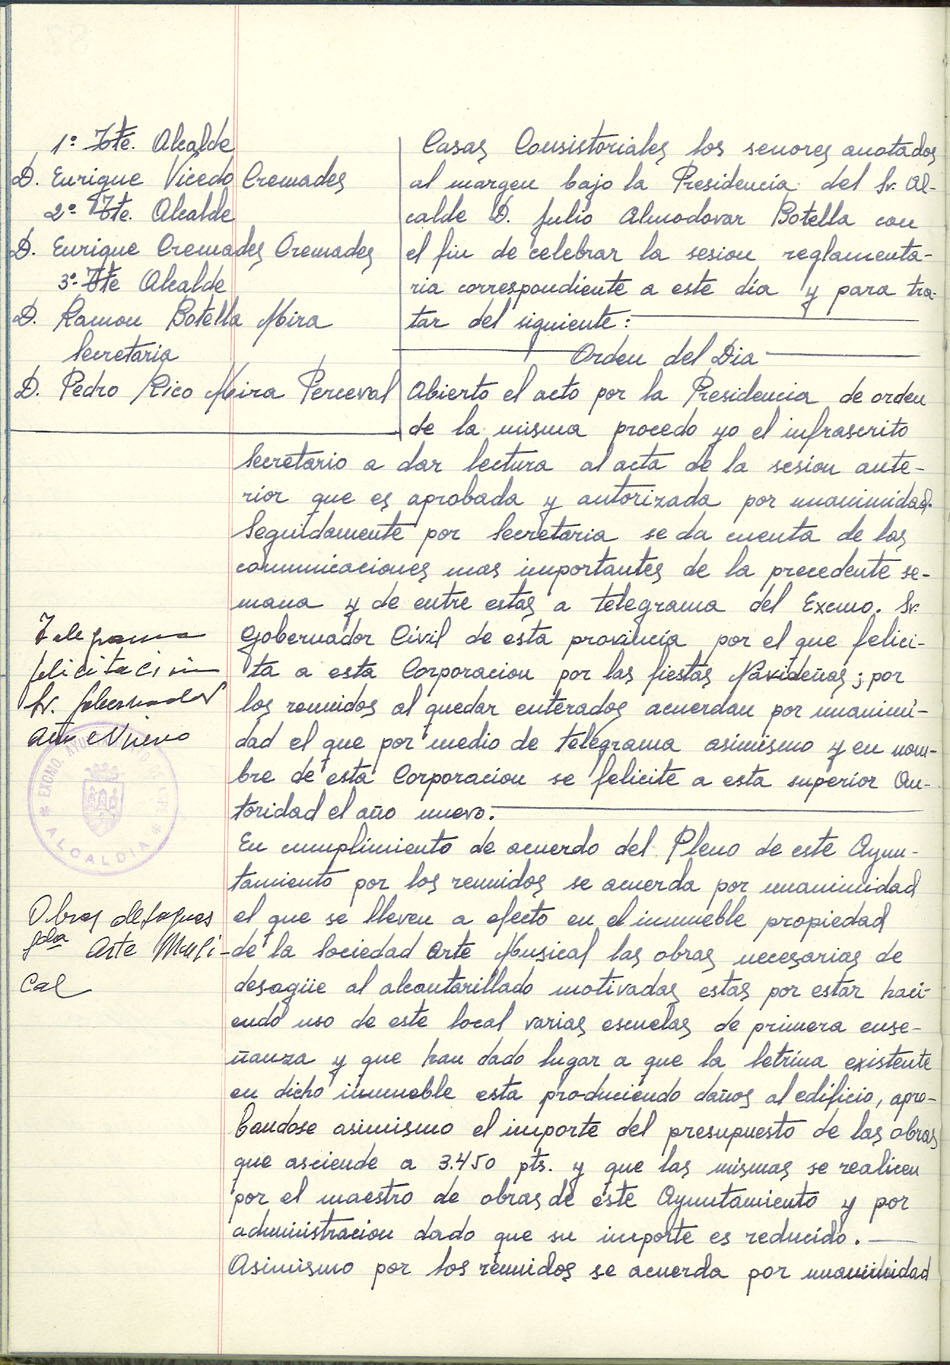 1º Tte. Alcalde
D. Enrique Vicedo Cremades
2º Tte. Alcalde
D. Enrique Cremades Cremades
3º Tte Alcalde
D. Ramon Botella Mira
Secretaria
D. Pedro Rico Mira Perceval
Casas Consistoriales los señores anotados
al margen bajo la Presidencia del Sr. Al-
calde D. Julio Almodovar Botella con
el fin de celebrar la sesion reglamenta-
ria correspondiente a este dia y para tra-
tar del siguiente:
Orden del Dia
Abierto el acto por la Presidencia de orden
de la misma procedo yo el infrascrito
Secretario a dar lectura al acta de la sesion ante-
rior que es aprobada y autorizada por unanimidad.
Seguidamente por Secretaria se da cuenta de las
comunicaciones mas importantes de la precedente se-
mana y de entre estas a telegrama del Excmo. Sr.
Gobernador Civil de esta provincia por el que felici-
ta a esta Corporacion por las fiestas Navideñas; por
los reunidos al quedar enterados acuerdan por unanimi-
dad el que por medio de telegrama asimismo y en nom-
bre de esta Corporacion se felicite a esta superior Au-
toridad el año nuevo.
Telegrama
felicitación
Sr. Gobernador
Año Nuevo
EXCMO. AYUNTAMIENTO DE
ALCALDIA
En cumplimiento de acuerdo del Pleno de este Ayun-
tamiento por los reunidos se acuerda por unanimidad
el que se lleven a efecto en el inmueble propiedad
de la Sociedad Arte Musical las obras necesarias de
desagüe al alcantarillado motivadas estas por estar haci-
endo uso de este local varias escuelas de primera ense-
ñanza y que han dado lugar a que la letrina existente
en dicho inmueble esta produciendo daños al edificio, apro-
bandose asimismo el importe del presupuesto de las obras
que asciende a 3.450 pts. y que las mismas se realicen
por el maestro de obras de este Ayuntamiento y por
administracion dado que su importe es reducido.
Obras desagües
Sdad Arte Musi-
cal
Asimismo por los reunidos se acuerda por unanimidad